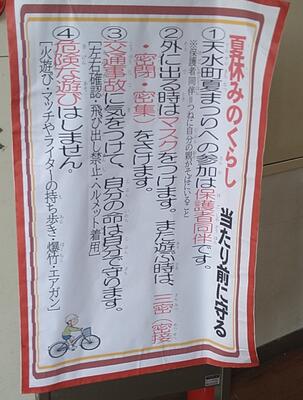 夏休みのくらし
当たり前に守る
①天水町夏まつりへの参加は保護者同伴です。
※保護者同伴＝つねに自分の親がそばにいること
②外に出る時はマスクをつけます。また遊ぶ時は、三密（密接
・密閉・密集）をさけます。
③交通事故に気をつけて、自分の命は自分で守ります。
［左右確認・飛び出し禁止・ヘルメット着用］
④危険な遊びはしません。
［火遊び・マッチやライターの持ち歩き・爆竹・エアガン］